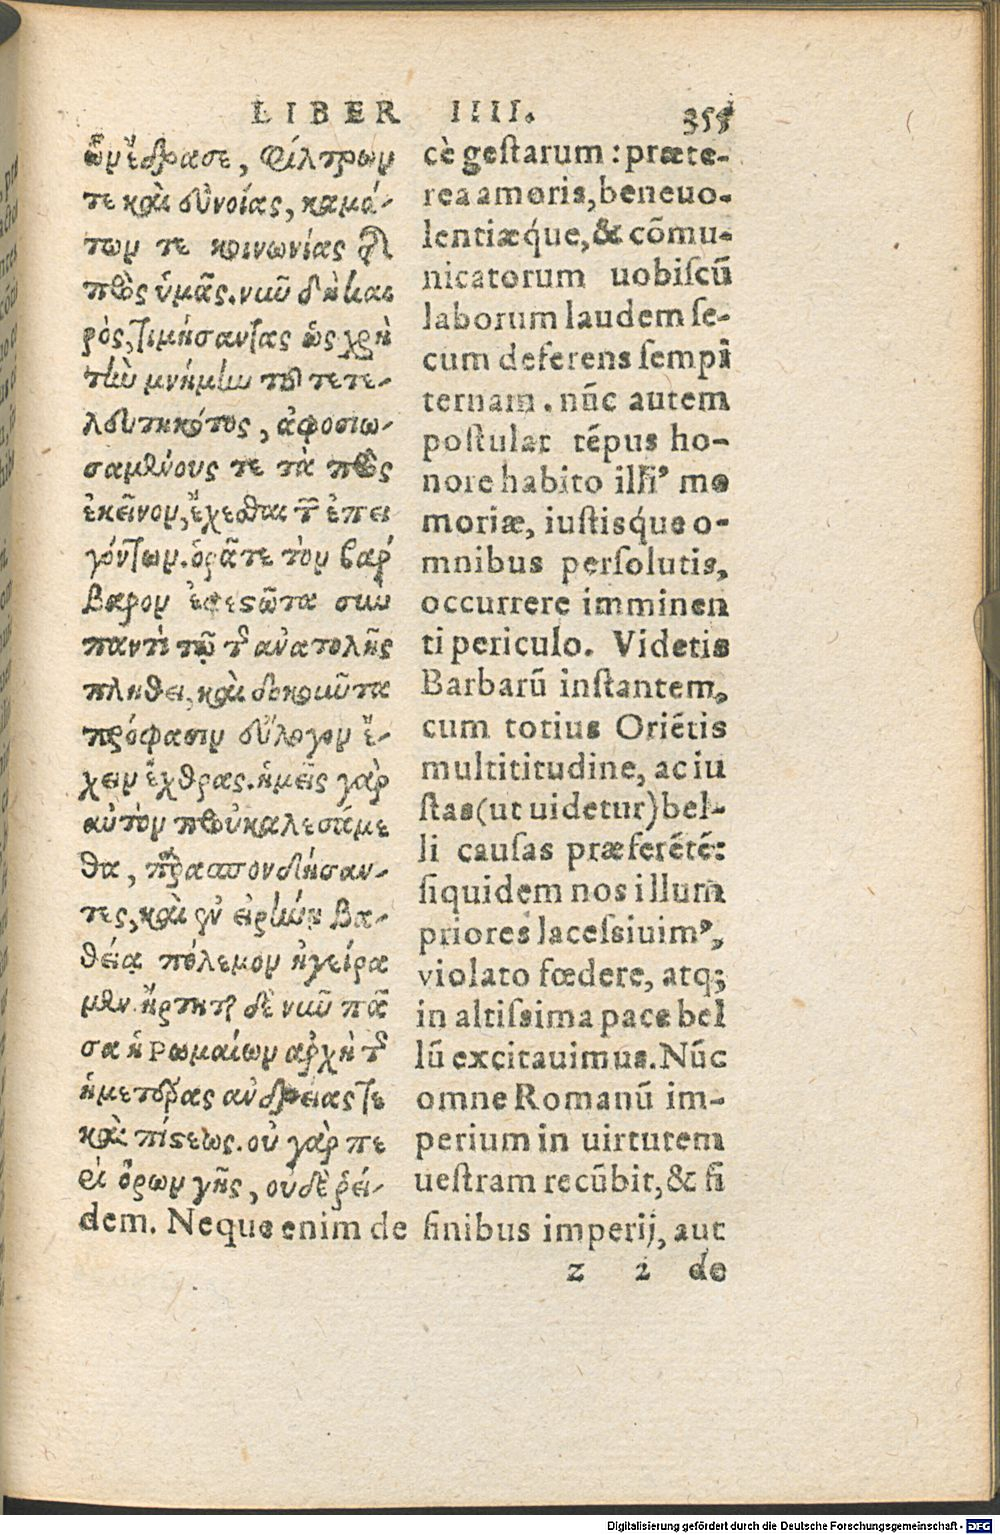 LIBER IIII. 355
ὧν ἔδρασε, φίλτρων
τε καὶ εὐνοίας, καμά-
των τε κοινωνίας τῆς
πρὸς ὑμᾶς. νῦν δὴ και
ρὸς, τιμήσαντας ὡς χρὴ
τὴν μνήμην τοῦ τετε-
λευτηκότος, ἀφοσιω-
σαμένους τε τὰ πρὸς
ἐκεῖνον, ἔχεσθαι τῶν ἐπει
γόντων. ὁρᾶτε τὸν βάρ
βαρον ἐφεστῶτα σὺν
παντὶ τῷ τῆς ἀνατολῆς
πλήθει, καὶ δοκοῦντα
πρόφασιν εὔλογον ἔ-
χειν ἔχθρας. ἡμεῖς γὰρ
αὐτὸν προὐκαλεσάμε
θα, παρασπονδήσαν-
τες, καὶ ἐν εἰρήνῃ βα-
θείᾳ πόλεμον ἠγείρα
μεν. ἤρτηται δὲ νῦν πᾶ
σα ἡ Ῥωμαίων ἀρχὴ τῆς
ἡμετέρας ἀνδρείας τε
καὶ πίστεως. οὐ γὰρ πε
ρὶ ὅρων γῆς, οὐδὲ ῥεί-
cè gestarum: præte-
rea amoris, beneuo-
lentiæq́ue, & cõmu-
nicatorum uobiscũ
laborum laudem se-
cum deferens sempi
ternam. nũc autem
postulat tẽpus ho-
nore habito illiꝰ me
moriæ, iustisq́ue o-
mnibus persolutis,
occurrere imminen
ti periculo. Videtis
Barbarũ instantem,
cum totius Oriẽtis
multititudine, ac iu
stas (ut uidetur) bel-
li causas præferẽtẽ:
siquidem nos illum
priores lacessiuimꝰ,
violato fœdere, atq;
in altissima pace bel
lũ excitauimus. Nũc
omne Romanũ im-
perium in uirtutem
uestram recũbit, & fi
dem. Neque enim de finibus imperij, aut
z 2 de
Digitalisierung gefördert durch die Deutsche Forschungsgemeinschaft - DFG